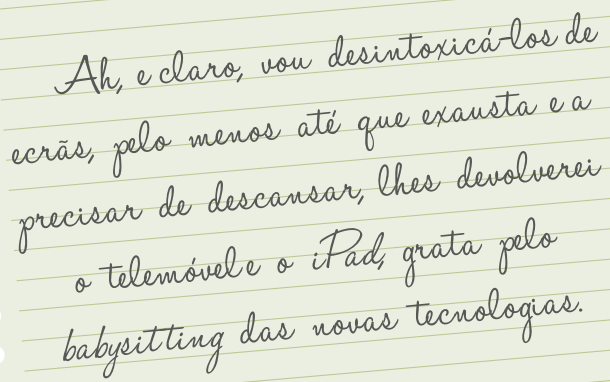 Ah, e claro, vou desintoxicá-los de
ecrãs, pelo menos até que exausta e a
precisar de descansar, lhes devolverei
o telemóvel e o iPad, grata pelo
babysitting das novas tecnologias.